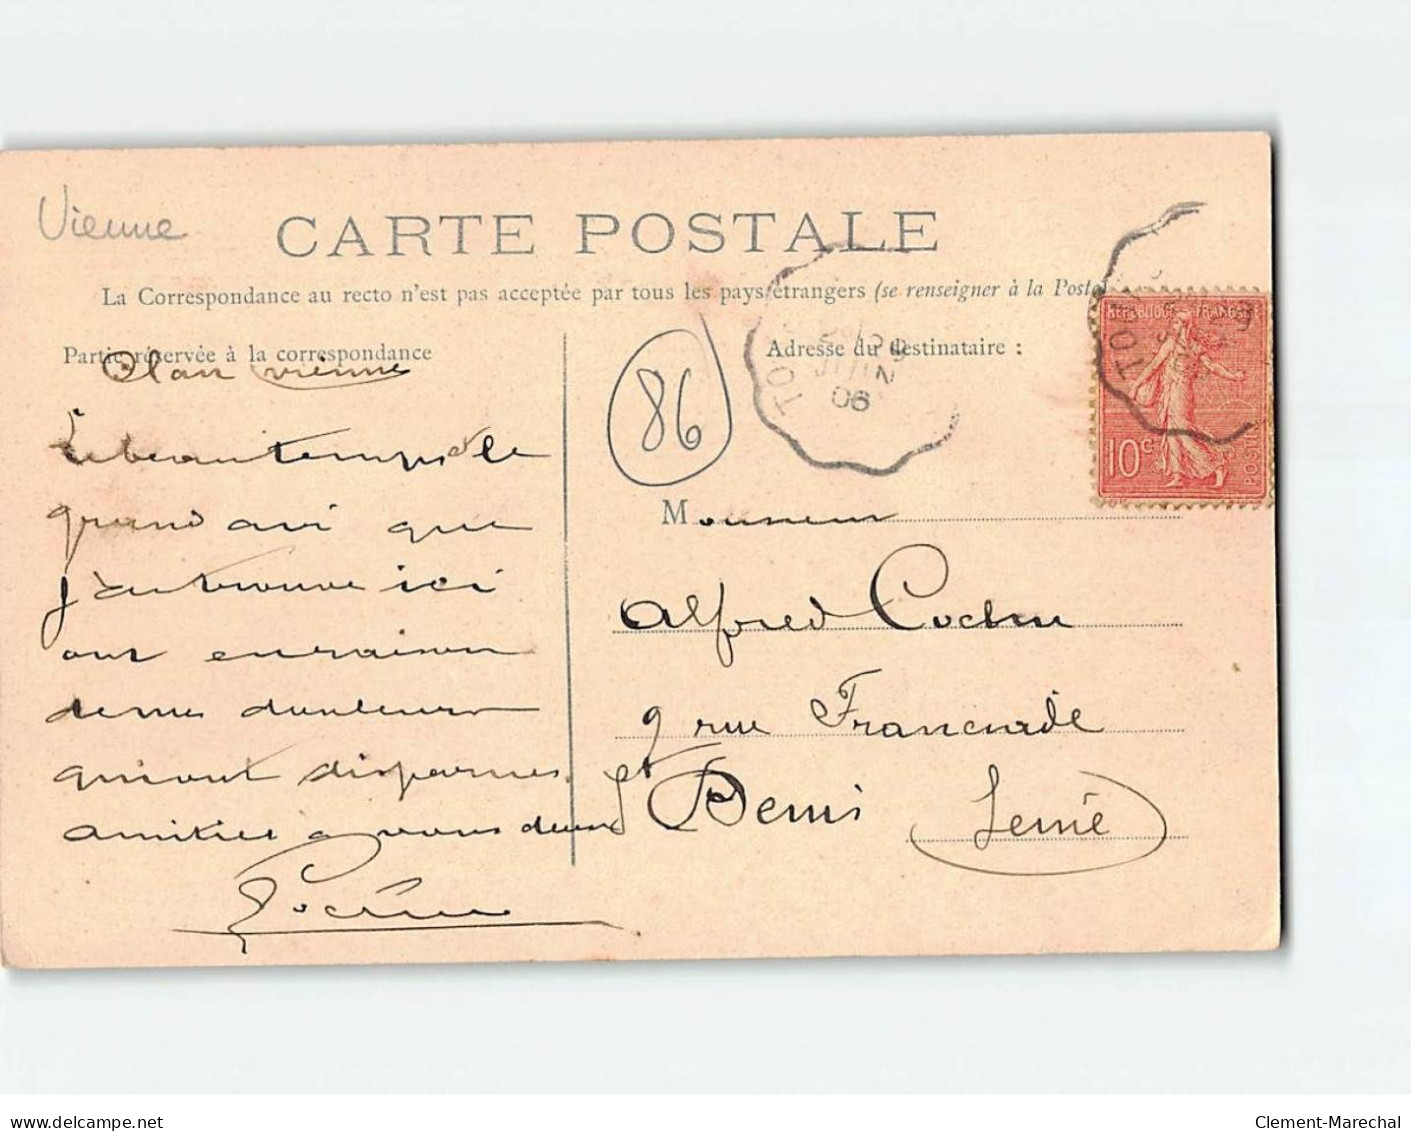 Vienne
CARTE POSTALE
La Correspondance au recto n'est pas acceptée par tous les pays étrangers (se renseigner à la Poste)
Partie réservée à la correspondance
Adresse du destinataire :
vienne
86
Le beau temps et le
grand air que
j'ai trouvé ici
ont en raison
de mes douleurs
qui ont disparues
amitiés a vous deux
REPUBLIQUE FRANÇAISE
10c
POSTES
JUIN
06
Monsieur
Alfred Cochu
9 rue Franciade
St Denis
Seine
delcampe.net
Clement-Marechal